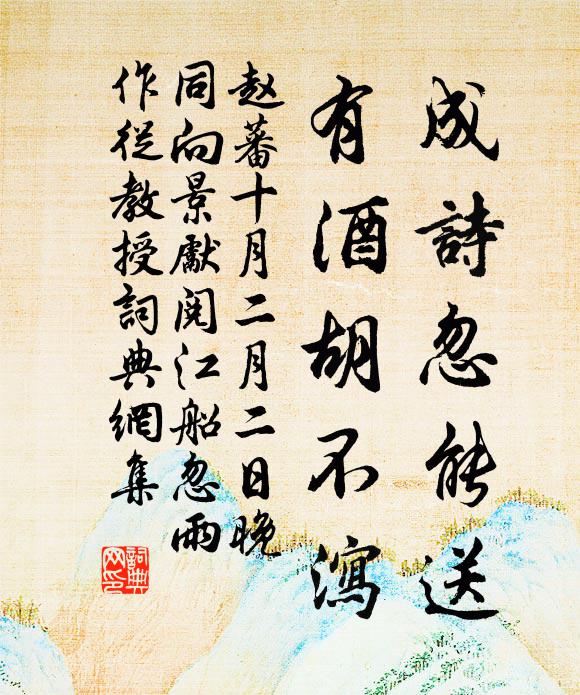 成詩忽能送
有酒胡不瀉
赵蕃十月二月二日晚
同向景獻阅江船忽雨
作從教授詞典網集
詞典
网印